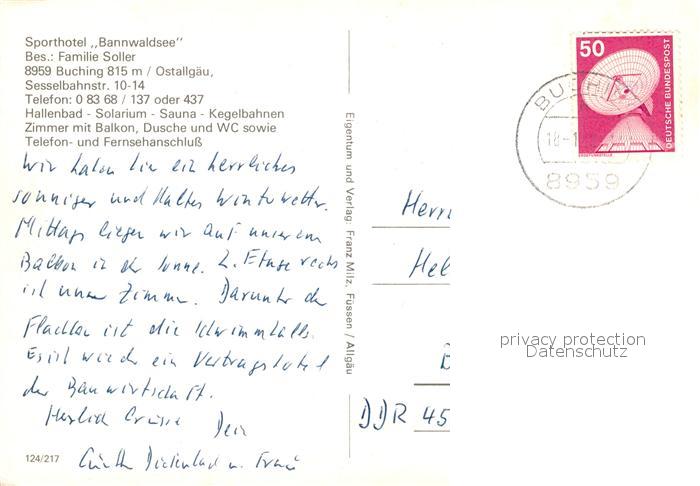 Sporthotel „Bannwaldsee"
Bes.: Familie Soller
8959 Buching 815 m / Ostallgäu,
Sesselbahnstr. 10-14
Telefon: 0 83 68 / 137 oder 437
Hallenbad - Solarium - Sauna - Kegelbahnen
Zimmer mit Balkon, Dusche und WC sowie
Telefon- und Fernsehanschluß
Wir haben hier ein herrliches
sonniges und kaltes Winterwetter.
Mittags liegen wir auf unserem
Balkon in der Sonne. 2. Etage rechts
ist unser Zimmer. Darunter der
Flachbau ist die Schwimmhalle.
Es ist wieder ein Vertragshotel
der Bauwirtschaft.
Herzliche Grüsse
Dein
Günth u. Frau
124/217
Eigentum und Verlag: Franz Milz, Füssen / Allgäu
50
DEUTSCHE BUNDESPOST
ERDFUNKSTELLE
BUCHI
18-1
8959
Herrn
Hel
DDR 45
privacy protection
Datenschutz